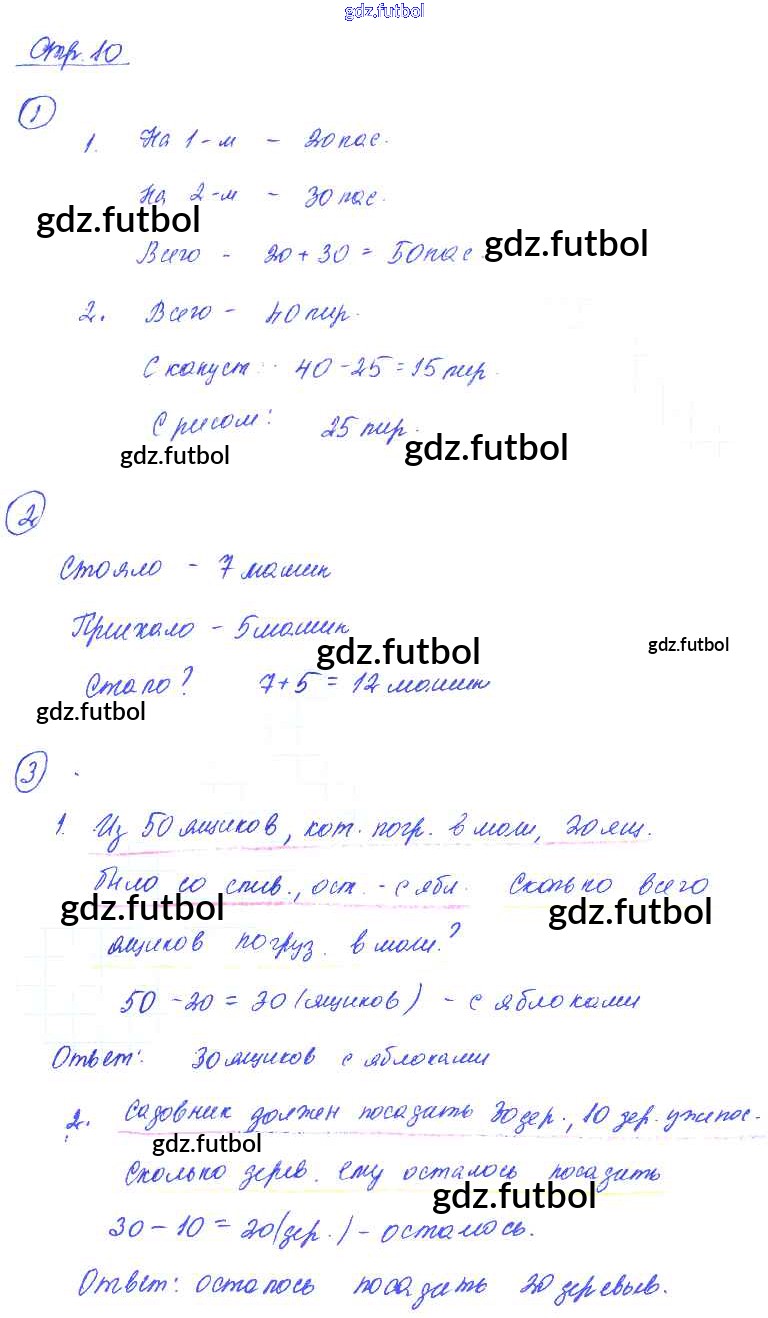 gdz.futbol
Стр. 10
1
1. На 1-м - 20 пас.
На 2-м - 30 пас.
gdz.futbol
gdz.futbol
Всего - 20 + 30 = 50 пас.
2. Всего - 40 пир.
С капуст: 40 - 25 = 15 пир.
С рисом: 25 пир.
gdz.futbol
gdz.futbol
2
Стояло - 7 машин
Приехало - 5 машин
gdz.futbol
gdz.futbol
Стало? 7 + 5 = 12 машин
gdz.futbol
3
1. Из 50 ящиков, кот. погр. в маш, 20 ящ.
было со слив., ост. - с ябл. Сколько всего
gdz.futbol
gdz.futbol
ящиков погруз. в маш.?
50 - 20 = 30 (ящиков) - с яблоками
Ответ: 30 ящиков с яблоками
2. Садовник должен посадить 30 дер., 10 дер. уже пос.
gdz.futbol
Сколько дерев. ему осталось посадить
gdz.futbol
30 - 10 = 20 (дер.) - осталось.
Ответ: осталось посадить 20 деревьев.